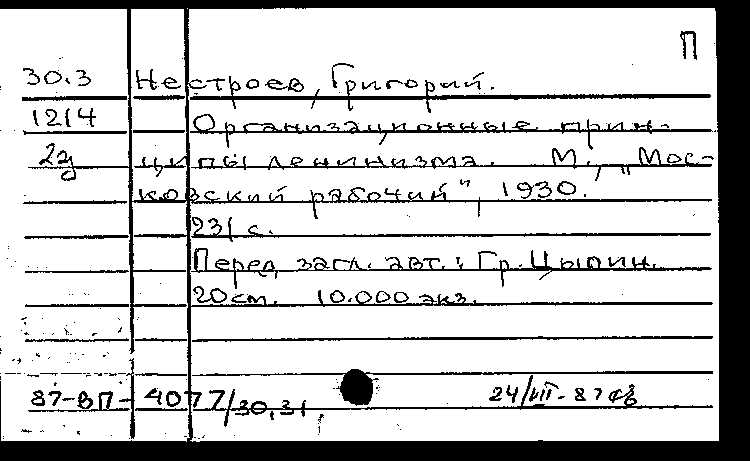 П
30.3 Нестроев, Григорий.
1214 Организационные прин-
2д ципы ленинизма. М., „Мос-
ковский рабочий", 1930.
231 с.
Перед загл. авт.: Гр. Цыпин.
20 см. 10.000 экз.
87-ВП-4077/30,31. 24/VII-87